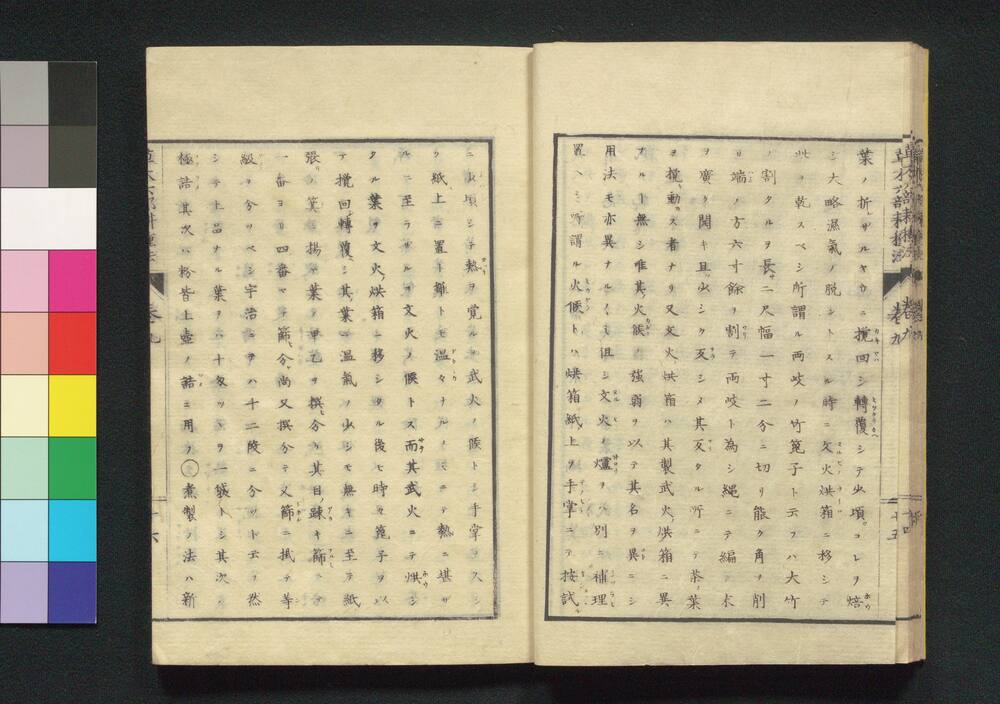 葉ノ折レザルヤウニ攪回シ轉覆シテ少頃コレヲ焙
シ大略濕氣ノ脱ントスル時ニ文火烘箱ニ移シテ
此ヲ乾スベシ所謂ル両岐ノ竹箆子ト云フハ大竹
ノ割タルヲ長サ二尺幅一寸二分ニ切リ能ク角ヲ削
リ端ノ方六寸餘ヲ割テ両岐ト為シ縄ニテ編ミ末
ヲ廣ク開キ且少シク反シメ其反タル所ニテ茶葉
ヲ攪動カス者ナリ又文火烘箱ハ其製武火烘箱ニ異
ナルト無シ唯其火候ノ強弱ヲ以テ其名ヲ異ニシ
用法モ亦異ナルノミ但シ文火ノ爐ハ別ニ補理
置ベシ所謂ル火候トハ烘箱紙上ヲ手掌ニテ按試ル
ニ少頃シテ熱ヲ覚ルヲ武火ノ候トシ手掌ヲ久シ
ク紙上ニ置ト雖トモ温々ナルノミニテ熱ニ堪ザ
ルニ至ラザルヲ文火ノ候トス而其武火ニテ烘シ
タル葉ヲ文火烘箱ニ移シタル後モ時々箆子ヲ以
テ攪回轉覆シ其葉ニ温氣ノ少シモ無キニ至テ紙
張ノ箕ニ揚ケ葉ノ甲乙ヲ撰ミ分ケ其目ノ疎キ篩ノ
一番ヨリ四番マテ篩ヒ分ケ尚又撰分テ又篩ニ抵テ等
級ヲ分ツベシ宇治ニテハ千二段ニ分ツト云フ然
シテ上品ナル葉ヲバ十匁ツヽヲ一袋トシ其次ハ
極詰其次ハ粉皆上壺ノ詰ニ用フ〇煮製ノ法ハ新
草木六部耕種法
巻九
十五
十六